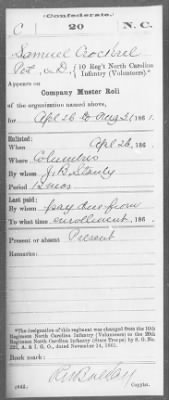 (Confederate.)
C 20 N. C.
Samuel
Pvt, Co. D, 10 Reg't North Carolina
Infantry (Volunteers).*
Appears on
Company Muster Roll
of the organization named above,
for Apl 26 to Aug 31, 1861.
Enlisted:
When Apl 26, 186 .
Where Columbus
By whom J. B. Stanly
Period 12 mos
Last paid:
By whom pay due from
To what time enrollment, 186 .
Present or absent Present
Remarks:
*The designation of this regiment was changed from the 10th
Regiment North Carolina Infantry (Volunteers) to the 20th
Regiment North Carolina Infantry (State Troops) by S. O. No.
222, A. & I. G. O., dated November 14, 1861.
Book mark:
(642)
Copyist.